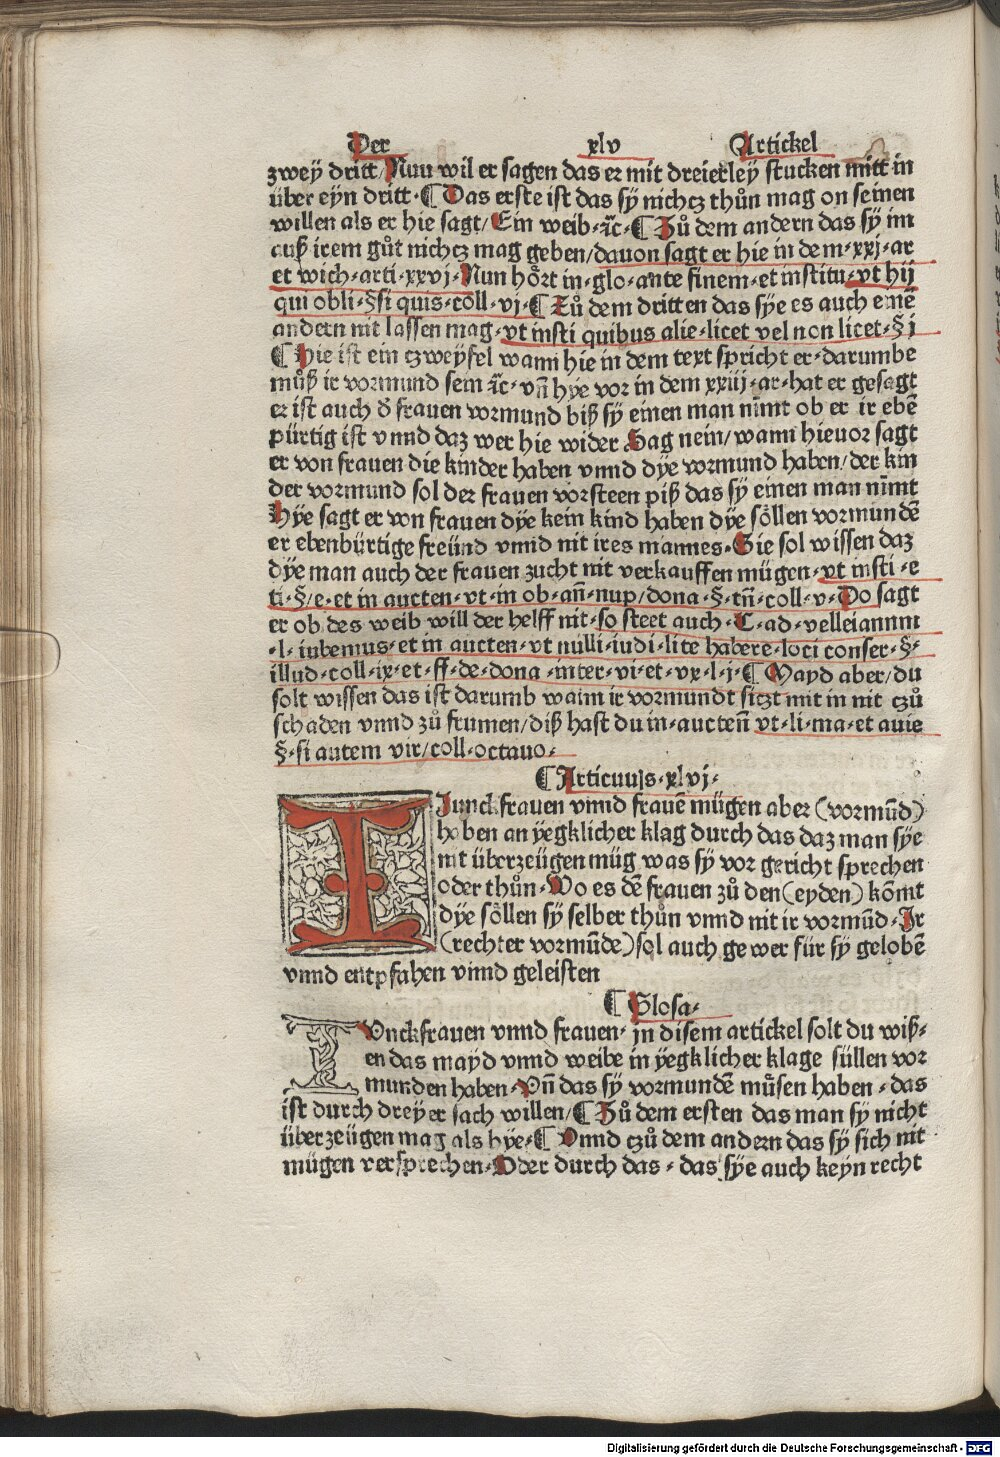 Der xlv Artickel
zwey dritt / Nun wil er sagen das ez mit dreierley stucken mitt in
über eyn dritt · ¶ Das erste ist das sÿ nichcz thůn mag on seinen
willen als er hie sagt / Ein weib · ꝛc̄ · ¶ Zů dem andern das sÿ im
auß irem gůt nichcz mag geben / dauon sagt er hie in dem · xxj · ar
et wich · arti · xxvj · Nun hoͤrt in · glo · ante finem · et institu · vt hij
qui obli · § si quis · coll · vj · ¶ Zů dem dritten das sÿe es auch einē
andern nit lassen mag · vt insti quibus alie · licet vel non licet · § j
¶ Hie ist ein czweyfel wann hie in dem text spricht er · darumbe
můß ir vormund sein ꝛc̄ · vn̄ hÿe vor in dem xxiij · ar · hat er gesagt
er ist auch d̕ frauen vormund biß sÿ einen man nīmt ob er ir ebē
pürtig ist vnnd daz wer hie wider Sag nein / wann hieuor sagt
er von frauen die kinder haben vnnd dÿe vormund haben / der kin
der vormund sol der frauen vorsteen piß das sÿ einen man nīmt
Hÿe sagt er von frauen dÿe kein kind haben dÿe soͤllen vormundē
er ebenbürtige freünd vnnd nit ires mannes · Sie sol wissen daz
dÿe man auch der frauen zucht nit verkauffen mügen · vt insti · e
ti · § / e · et in aucten · vt · in ob · an̄ · nup / dona · § · tn̄ · coll · v · Do sagt
er ob des weib will der helff nit · so steet auch · C · ad · velleiannm
· l · iubemus · et in aucten · vt nulli · iudi · lite habere · loci conser · § ·
illud · coll · ix · et · ff · de · dona · inter · vi · et · vx · l · j · ¶ Mayd aber / du
solt wissen das ist darumb wann ir vormundt siczt mit in nit czů
schaden vnnd zů frumen / diß hast du in · aucten̄ vt · li · ma · et auie
§ · si autem vir / coll · octauo ·
¶ Articuujs · xlvj ·
Iunckfrauen vnnd frauē mügen aber (vormūd)
haben an ÿegklicher klag durch das daz man sÿe
nit überzeügen müg was sÿ vor gericht sprechen
oder thůn · Wo es dē frauen zů den (eyden) kōmt
dÿe soͤllen sÿ selber thůn vnnd nit ir vormūd · Ir
(rechter vormūde) sol auch gewer für sÿ gelobē
vnnd entpfahen vnnd geleisten
¶ Glosa ·
IVnckfrauen vnnd frauen · in disem artickel solt du wiß ·
en das mayd vnnd weibe in ÿegklicher klage süllen vor
munden haben · Vn̄ das sÿ vormundē můsen haben · das
ist durch dreÿer sach willen / ¶ Zů dem ersten das man sÿ nicht
überzeügen mag als hÿe · ¶ Vnnd czů dem andern das sÿ sich nit
mügen versprechen · Oder durch das · das sÿe auch keyn recht
Digitalisierung gefördert durch die Deutsche Forschungsgemeinschaft - DFG